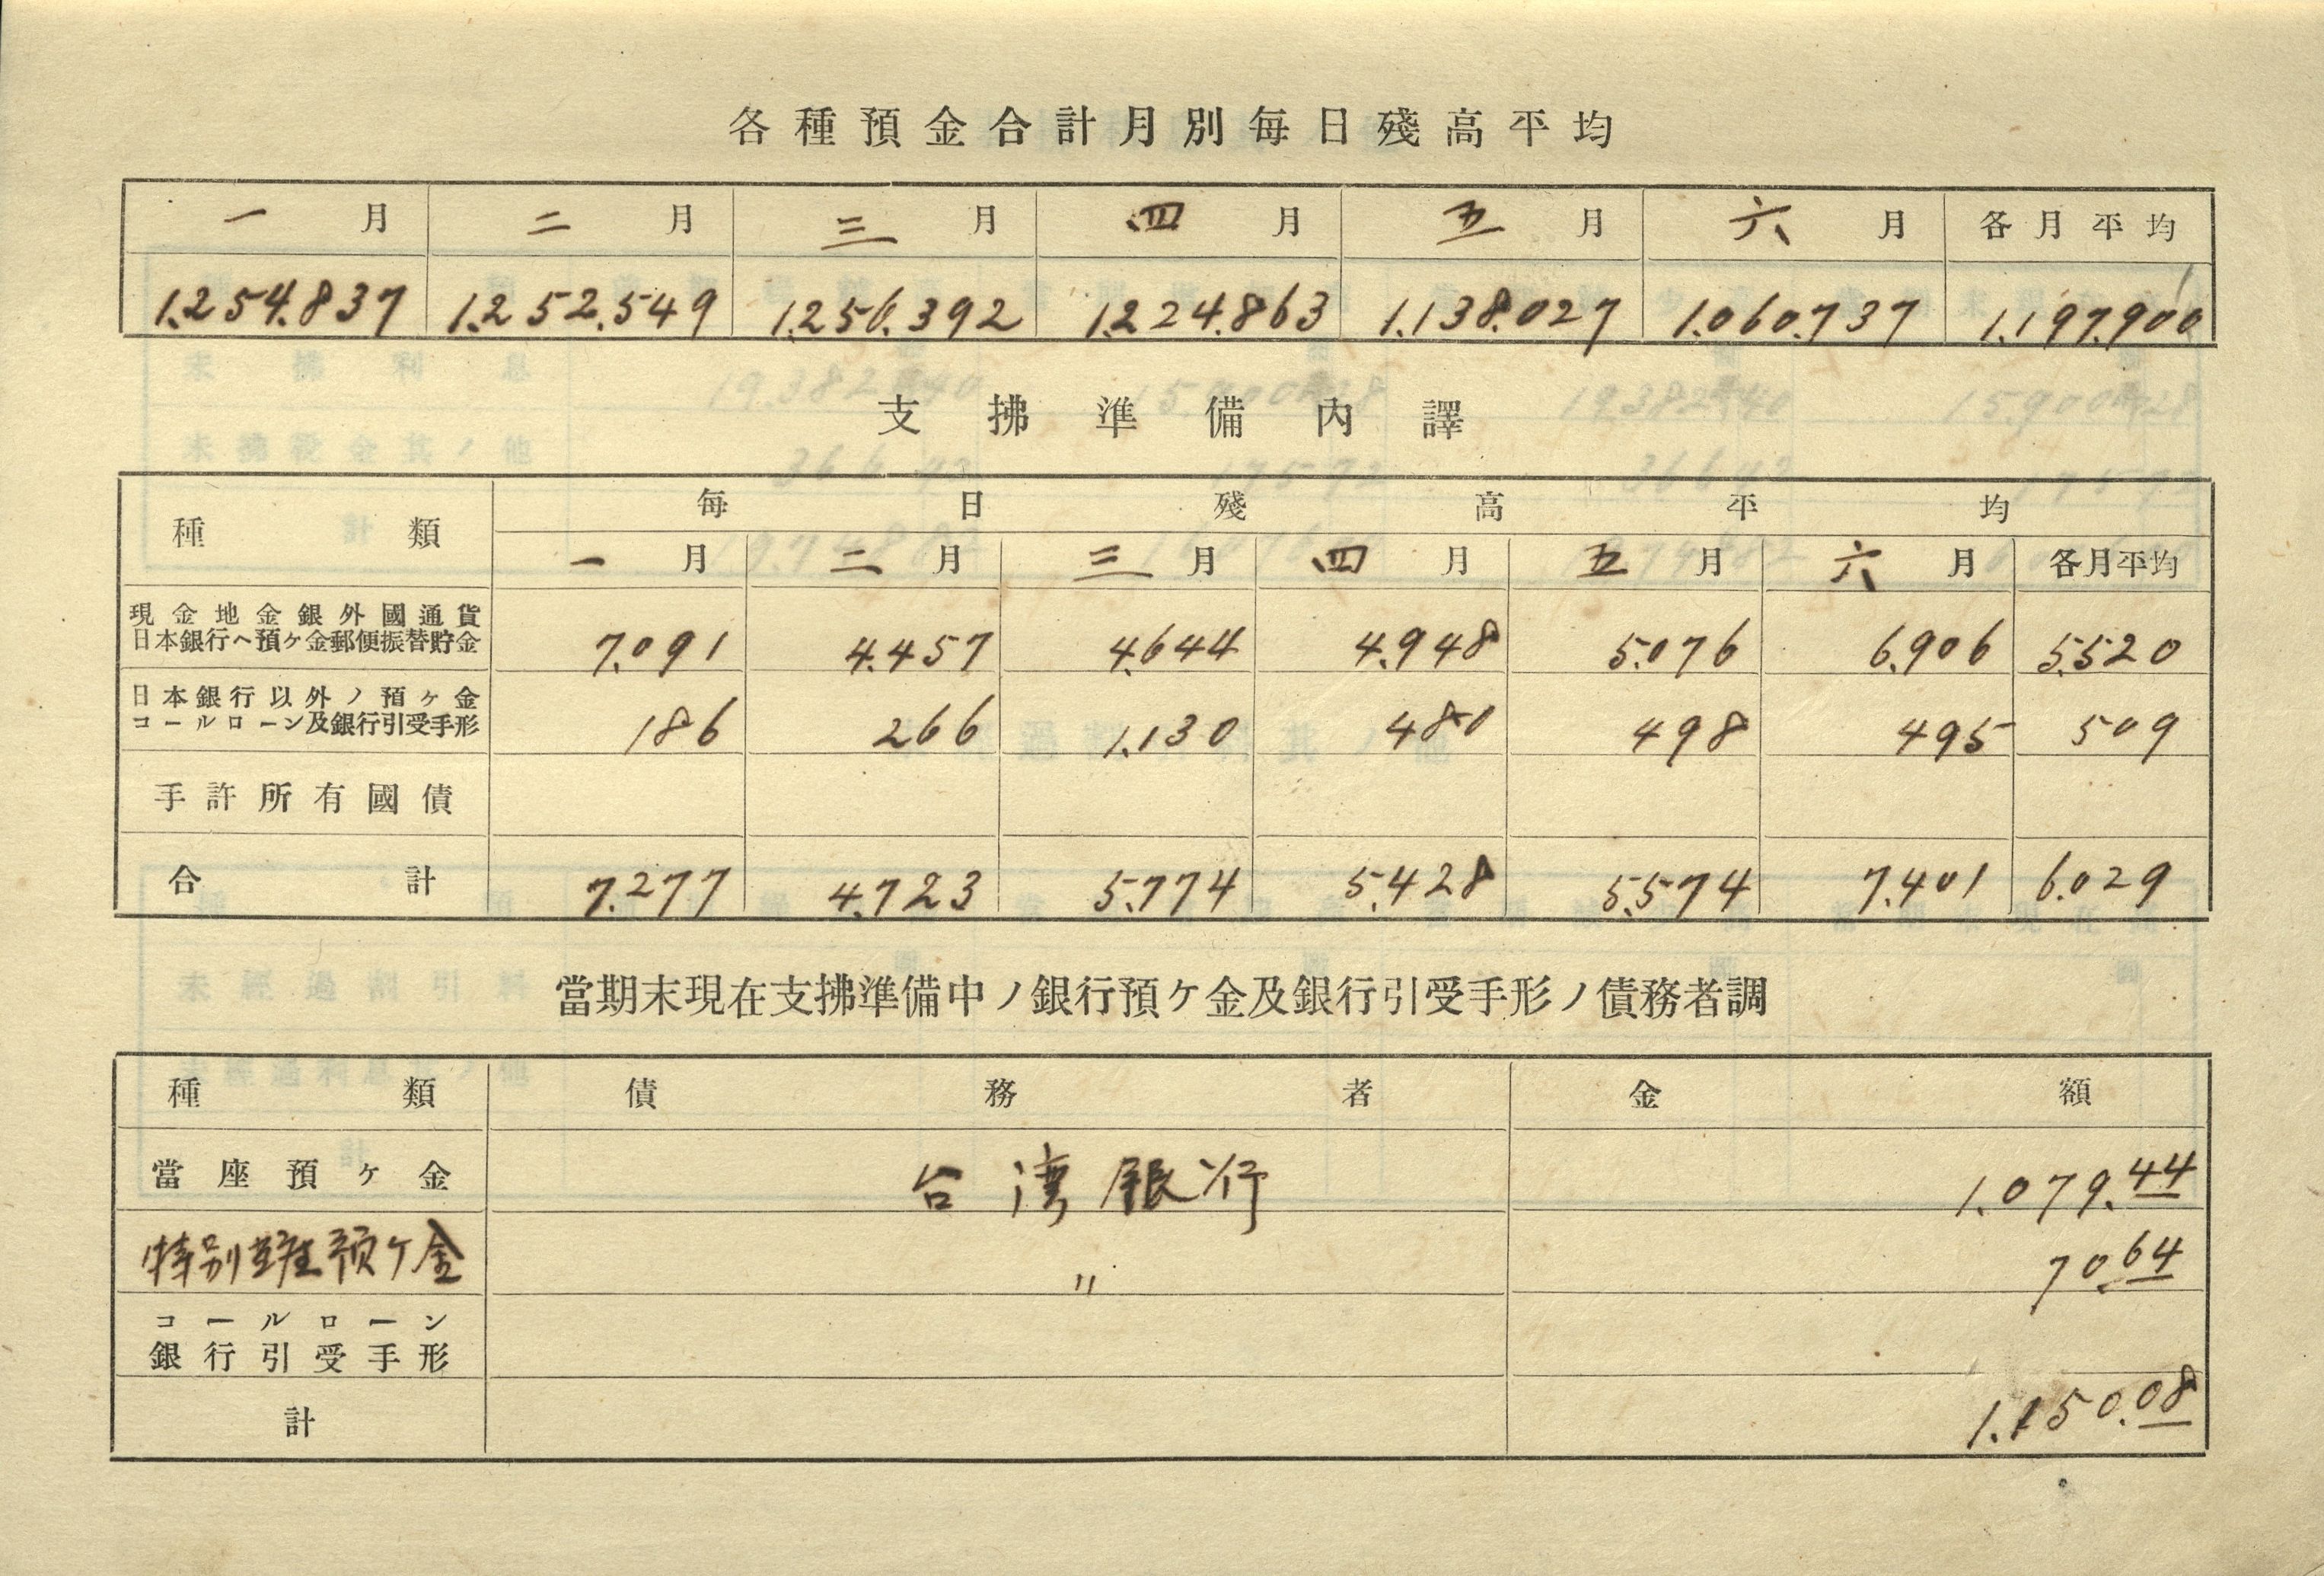 各種預金合計月別每日殘高平均
一月 二月 三月 四月 五月 六月 各月平均
1.254.837 1.252.549 1.256.392 1.224.863 1.138.027 1.060.737 1.197.900
支拂準備內譯
種類 每日殘高平均
一月 二月 三月 四月 五月 六月 各月平均
現金地金銀外國通貨
日本銀行ヘ預ケ金郵便振替貯金 7.091 4.457 4.644 4.948 5.076 6.906 5.520
日本銀行以外ノ預ケ金
コールローン及銀行引受手形 186 266 1.130 480 498 495 509
手許所有國債
合計 7.277 4.723 5.774 5.428 5.574 7.401 6.029
當期末現在支拂準備中ノ銀行預ケ金及銀行引受手形ノ債務者調
種類 債務者 金額
當座預ケ金 台湾銀行 1.079.44
特別預ケ金 〃 70.64
コールローン
銀行引受手形
計 1.150.08